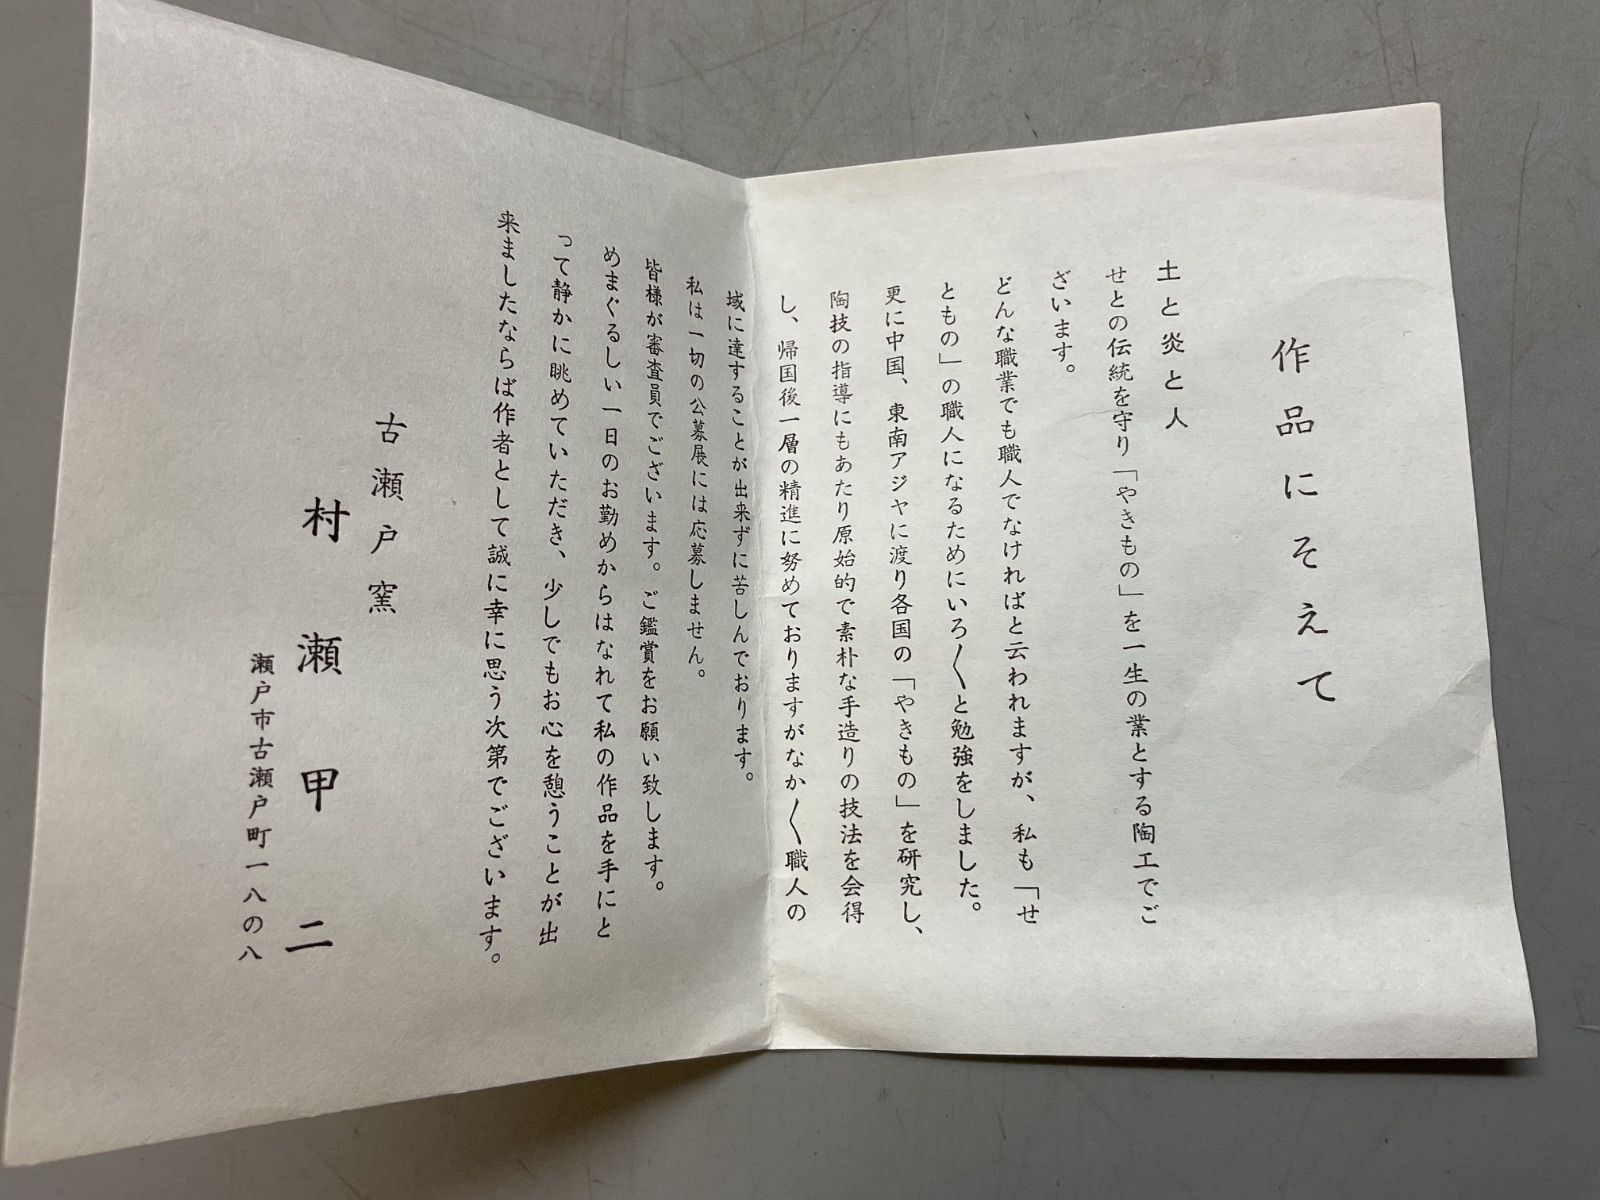 作品にそえて
土と炎と人
せとの伝統を守り「やきもの」を一生の業とする陶工でご
ざいます。
どんな職業でも職人でなければと云われますが、私も「せ
ともの」の職人になるためにいろ〳〵と勉強をしました。
更に中国、東南アジヤに渡り各国の「やきもの」を研究し、
陶技の指導にもあたり原始的で素朴な手造りの技法を会得
し、帰国後一層の精進に努めておりますがなか〳〵職人の
域に達することが出来ずに苦しんでおります。
私は一切の公募展には応募しません。
皆様が審査員でございます。ご鑑賞をお願い致します。
めまぐるしい一日のお勤めからはなれて私の作品を手にと
って静かに眺めていただき、少しでもお心を憩うことが出
来ましたならば作者として誠に幸に思う次第でございます。
古瀬戸窯
村瀬甲二
瀬戸市古瀬戸町一八の八